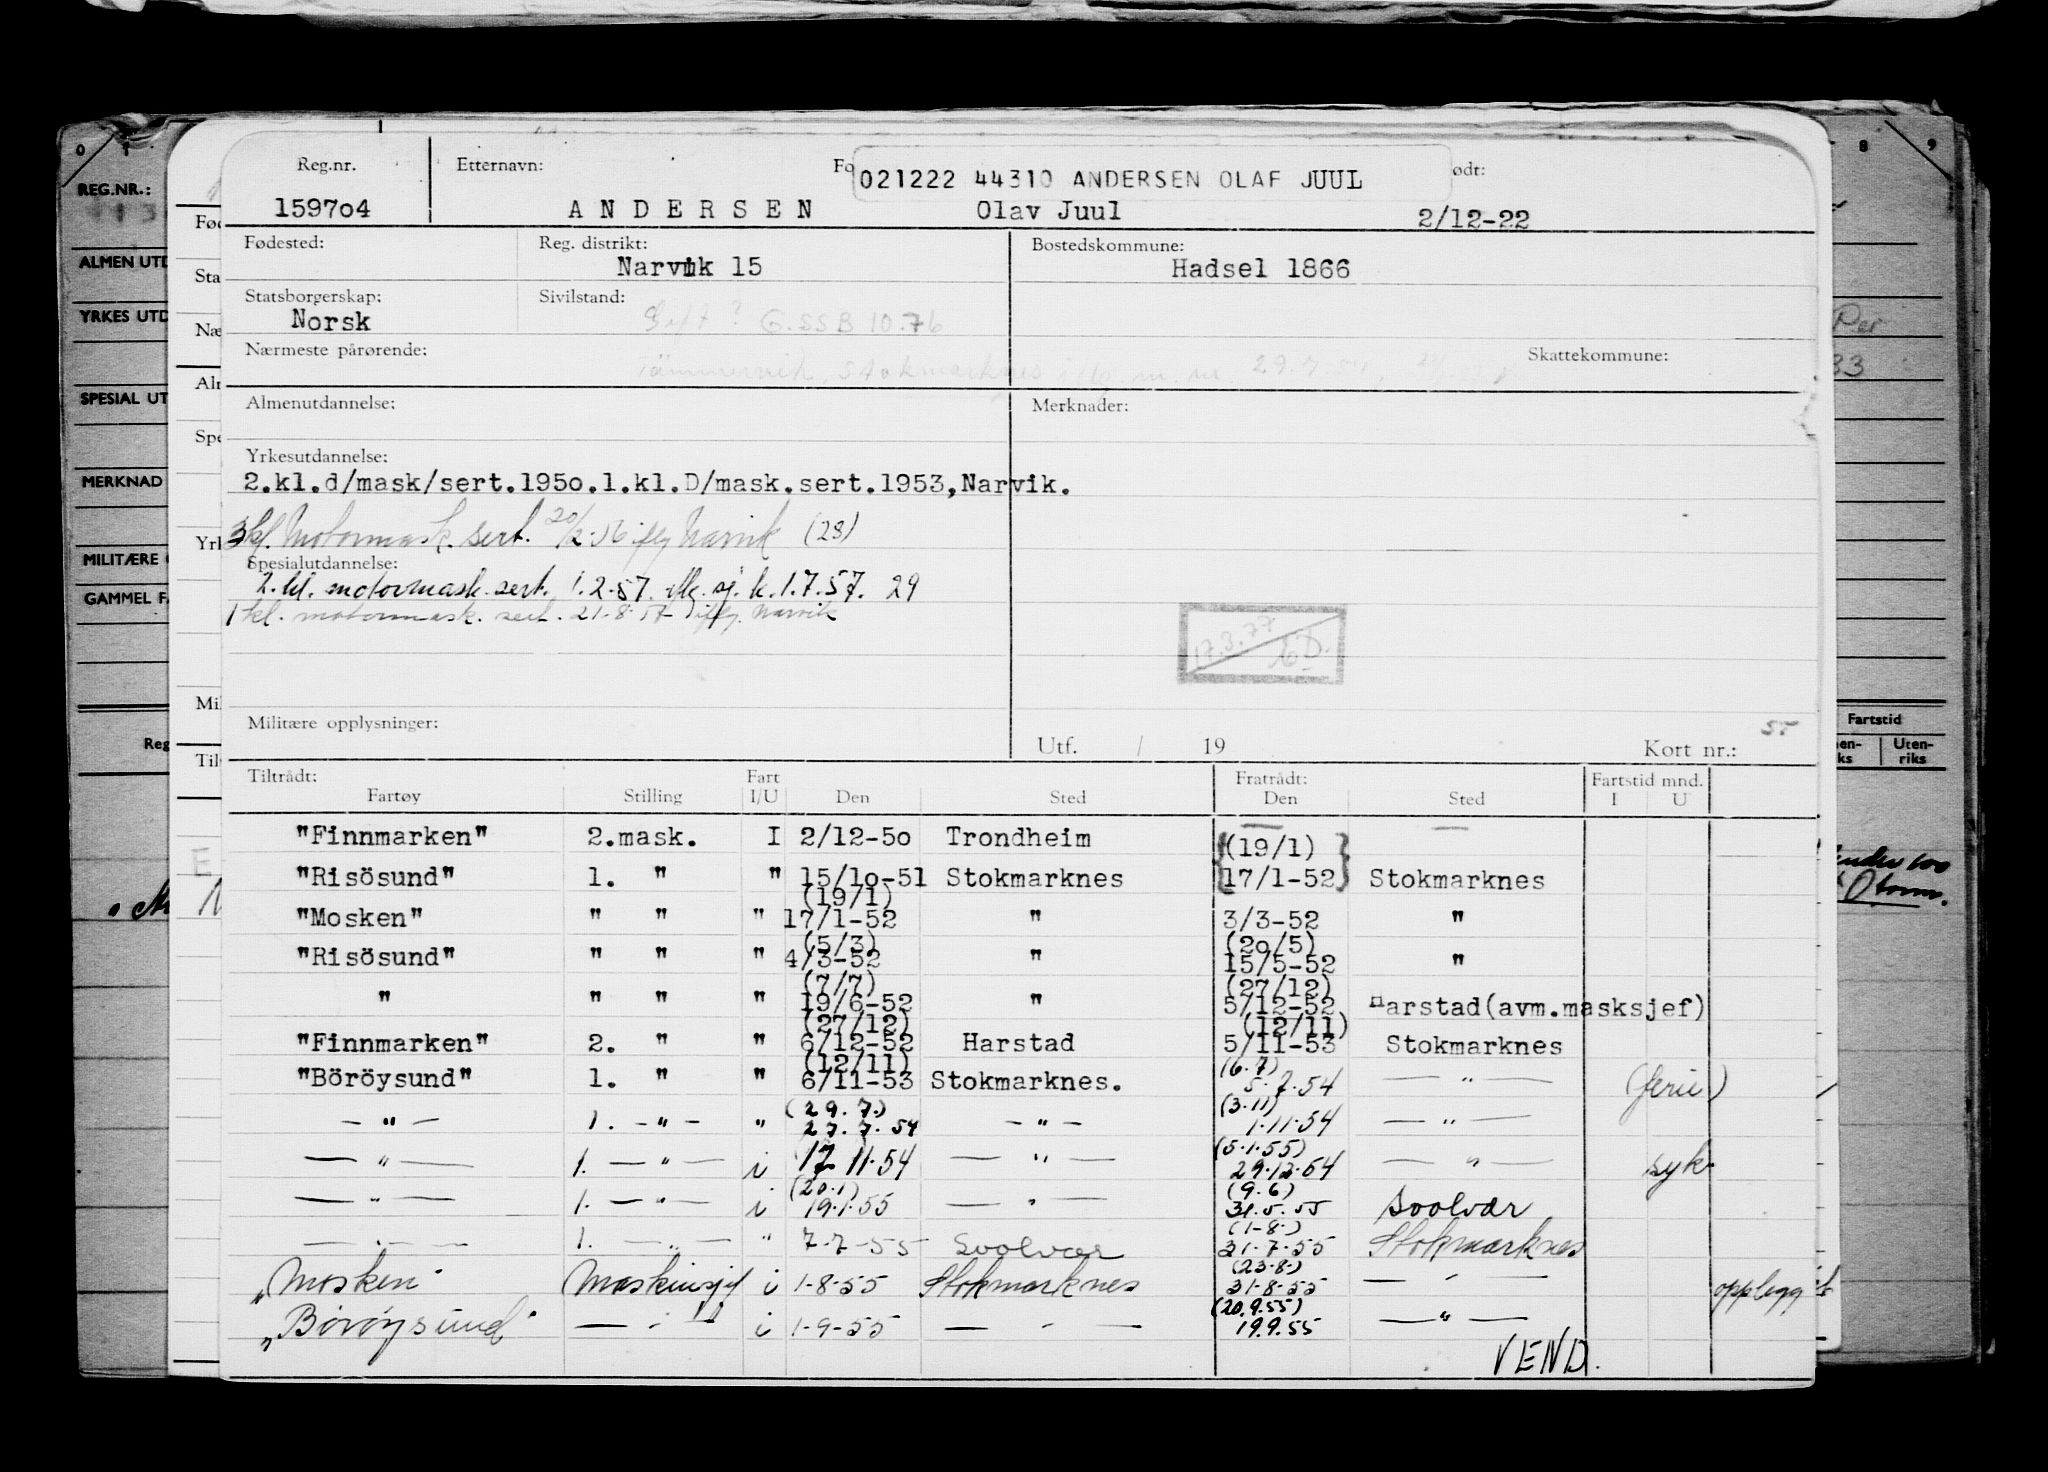 Reg.nr. Etternavn: Fo 021222 44310 ANDERSEN OLAF JUUL ødt:
159704 A N D E R S E N Olav Juul 2/12-22
Fødested: Reg. distrikt: Bostedskommune:
Narvik 15 Hadsel 1866
Statsborgerskap: Sivilstand:
Norsk Gift? G.SSB 10.76
Nærmeste pårørende: Skattekommune:
Stokmarknes 29.7.
Almenutdannelse: Merknader:
Yrkesutdannelse:
2.kl.d/mask/sert.1950.1.kl.D/mask.sert.1953,Narvik.
3 kl. Motormask. sert. 20/2-56 iflg Narvik (28)
Spesialutdannelse:
2. kl. motormask. sert. 1.2.57. iflg. sj. k. 1.7.57. 29
1 kl. motormask. sert. 21-8-57 iflg. Narvik
17.3.77
Militære opplysninger:
Utf. / 19 Kort nr.:
Tiltrådt: Fart Fratrådt: Fartstid mnd.
Fartøy Stilling I/U Den Sted Den Sted I U
"Finnmarken" 2.mask. I 2/12-50 Trondheim — —
(19/1)
"Risösund" 1. " " 15/10-51 Stokmarknes 17/1-52 Stokmarknes
(19/1)
"Mosken" " " " 17/1-52 " 3/3-52 "
(5/3) (20/5)
"Risösund" " " " 4/3-52 " 15/5-52 "
(7/7) (27/12)
" " " " 19/6-52 " 5/12-52 Harstad(avm.masksjef)
(27/12) (12/11)
"Finnmarken" 2. " " 6/12-52 Harstad 5/11-53 Stokmarknes
(12/11) (6.7)
"Böröysund" 1. " " 6/11-53 Stokmarknes. 5.7.54 — " — (ferie)
(29.7.) (3.11)
— " — 1. — " — " 27.7.54 — " — 1.11.54 — " —
(5.1.55)
— " — 1. — " — i 17 11.54 — " — 29.12.54 — " — syk
(20.1) (9.6)
— " — 1. — " — i 19.1.55 — " — 31.5.55 Svolvær
(1-8-)
— " — 1. — " — " 7-7-55 Svolvær 31.7.55 Stokmarknes
(23.8.)
"Mosken" Maskinsjef i 1-8-55 Stokmarknes 31-8-55 — " — opplegg
(20.9.55)
"Böröysund" — " — i 1-9-55 — " — 19.9.55 — " —
VEND.
REG.NR.:
ALMEN UTD
YRKES UTD
SPESIAL UT
MERKNAD
MILITÆRE
GAMMEL F
Reg
Fød
Sta
Næ
Aln
Spe
Yrk
Mil
Til
0 1
8 9
Per
33
Fartstid
en-
ks
Uten-
riks